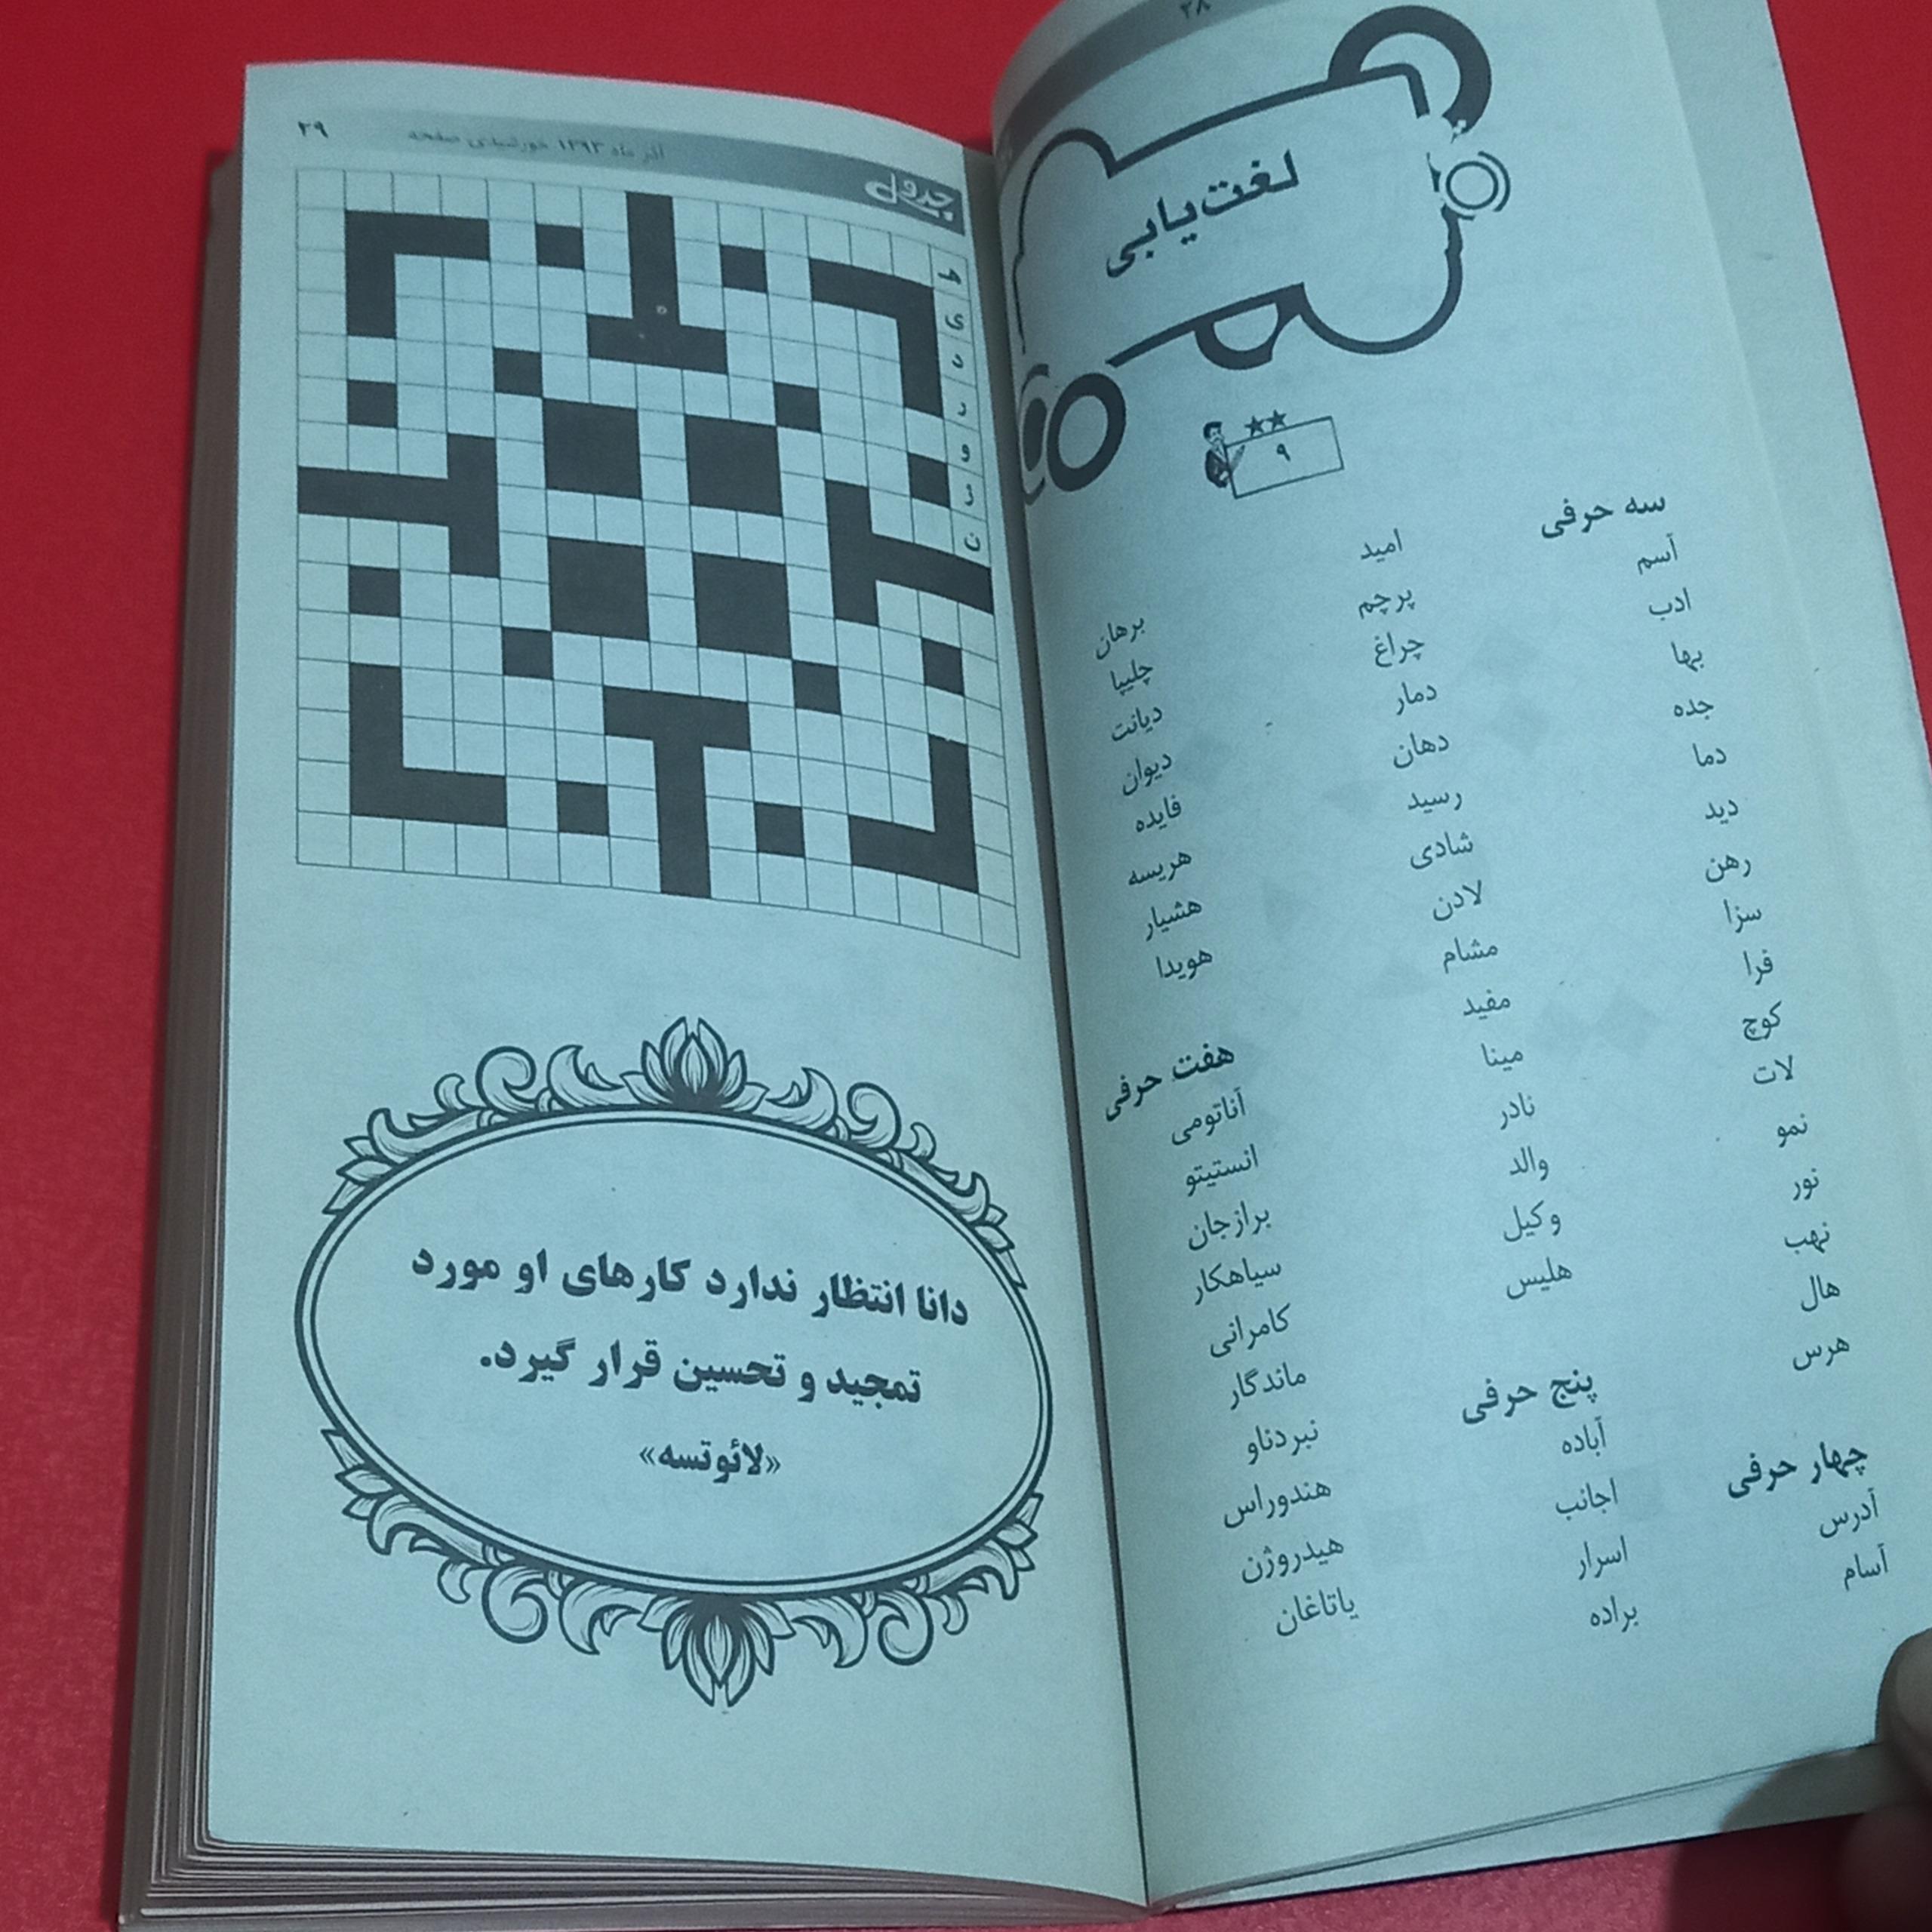 ۲۸
لغت‌یابی
۹
سه حرفی
آسم
ادب
بها
جده
دما
دید
رهن
سزا
فرا
کوچ
لات
نمو
نور
نهب
هال
هرس
چهار حرفی
آدرس
آسام
امید
پرچم
چراغ
دمار
دهان
رسید
شادی
لادن
مشام
مفید
مینا
نادر
والد
وکیل
هلیس
پنج حرفی
آباده
اجانب
اسرار
براده
برهان
چلیپا
دیانت
دیوان
فایده
هریسه
هشیار
هویدا
هفت حرفی
آناتومی
انستیتو
برازجان
سیاهکار
کامرانی
ماندگار
نبردناو
هندوراس
هیدروژن
یاتاغان
جدول
آذر ماه ۱۳۹۳ خورشیدی صفحه ۲۹
ه
ی
د
ر
و
ژ
ن
دانا انتظار ندارد کارهای او مورد
تمجید و تحسین قرار گیرد.
«لائوتسه»